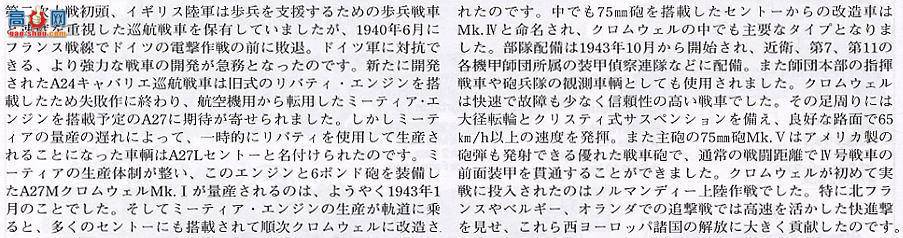 次 戦初頭、イギリス陸軍は歩兵を支援するための歩兵戦車
重視した巡航戦車を保有していましたが、1940年6月に
フランス戦線でドイツの電撃作戦の前に敗退。ドイツ軍に対抗で
きる、より強力な戦車の開発が急務となったのです。新たに開発
されたA24キャバリエ巡航戦車は旧式のリバティ・エンジンを搭
載したため失敗作に終わり、航空機用から転用したミーティア・エ
ンジンを搭載予定のA27に期待が寄せられました。しかしミーテ
ィアの量産の遅れによって、一時的にリバティを使用して生産さ
れることになった車輌はA27Lセントーと名付けられたのです。ミ
ーティアの生産体制が整い、このエンジンと6ポンド砲を装備し
たA27MクロムウェルMk.Ⅰが量産されるのは、ようやく1943年1
月のことでした。そしてミーティア・エンジンの生産が軌道に乗
ると、多くのセントーにも搭載されて順次クロムウェルに改造さ
れたのです。中でも75㎜砲を搭載したセントーからの改造車は
Mk.Ⅳと命名され、クロムウェルの中でも主要なタイプとなりま
した。部隊配備は1943年10月から開始され、近衛、第7、第11の
各機甲師団所属の装甲偵察連隊などに配備。また師団本部の指揮
戦車や砲兵隊の観測車輌としても使用されました。クロムウェル
は快速で故障も少なく信頼性の高い戦車でした。その足周りには
大径転輪とクリスティ式サスペンションを備え、良好な路面で65
㎞/h以上の速度を発揮。また主砲の75㎜砲Mk.Ⅴはアメリカ製の
砲弾も発射できる優れた戦車砲で、通常の戦闘距離でⅣ号戦車の
前面装甲を貫通することができました。クロムウェルが初めて実
戦に投入されたのはノルマンディー上陸作戦でした。特に北フラ
ンスやベルギー、オランダでの追撃戦では高速を活かした快進撃
を見せ、これら西ヨーロッパ諸国の解放に大きく貢献したのです。